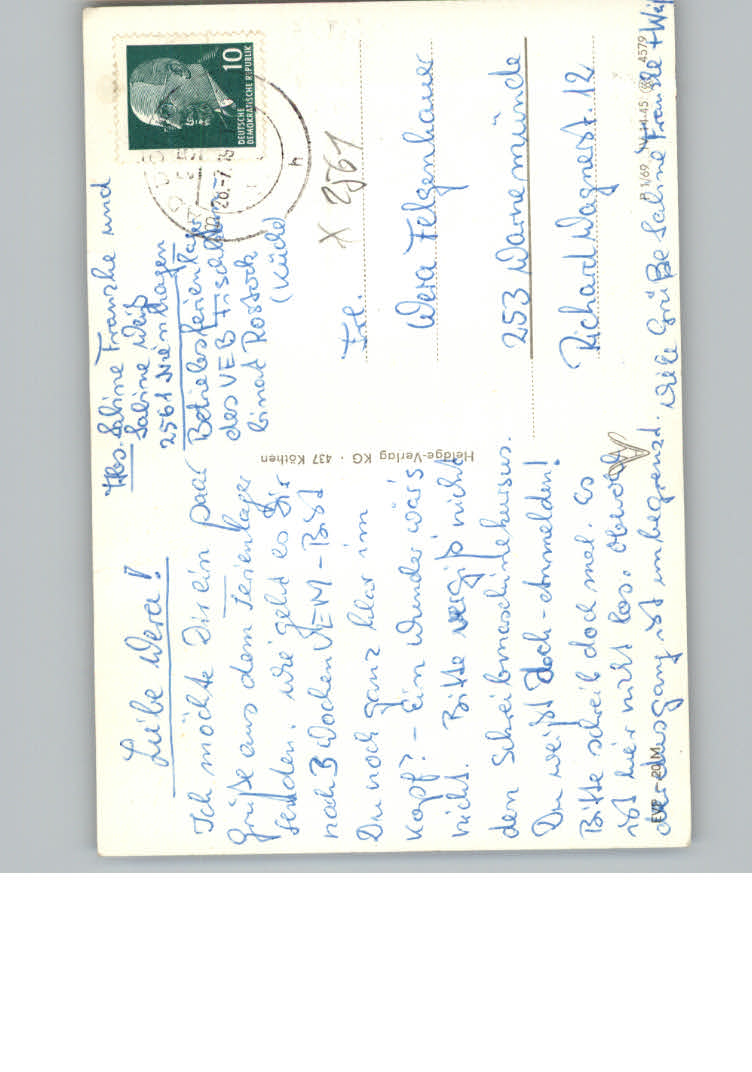 Liebe Wera!
Ich möchte Dir ein paar
Grüße aus dem Ferienlager
senden. Wie geht es Dir
nach 3 Wochen VEM - Bist
Du noch ganz klar im
Kopf? - Ein Wunder wär's
nicht. Bitte vergiß nicht
den Schreibmaschinekursus.
Du weißt doch - Anmelden!
Bitte schreib doch mal. Es
ist hier nicht los. Obwohl
der Ausgang ist unbegrenzt. Viele Grüße Sabine Franzke + Weiß
EVP -,20 M
Heldge-Verlag KG · 437 Köthen
Abs. Sabine Franzke und
Sabine Weiß
2561 Nienhagen
Betriebsferienlager
des VEB Fischkom-
binat Rostock
(Küche)
DEUTSCHE
DEMOKRATISCHE REPUBLIK
10
X 2561
Frl.
Wera Felgenhauer
253 Warnemünde
Richard Wagnerst. 12
P 1/69 IV-14-45 4579